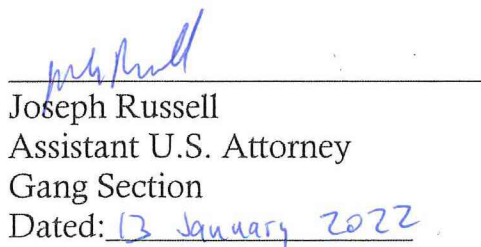 Joseph Russell
Assistant U.S. Attorney
Gang Section
Dated: 13 January 2022